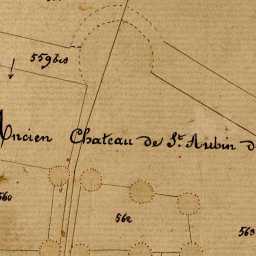 559bis
Ancien Chateau de St. Aubin d
560
562
563